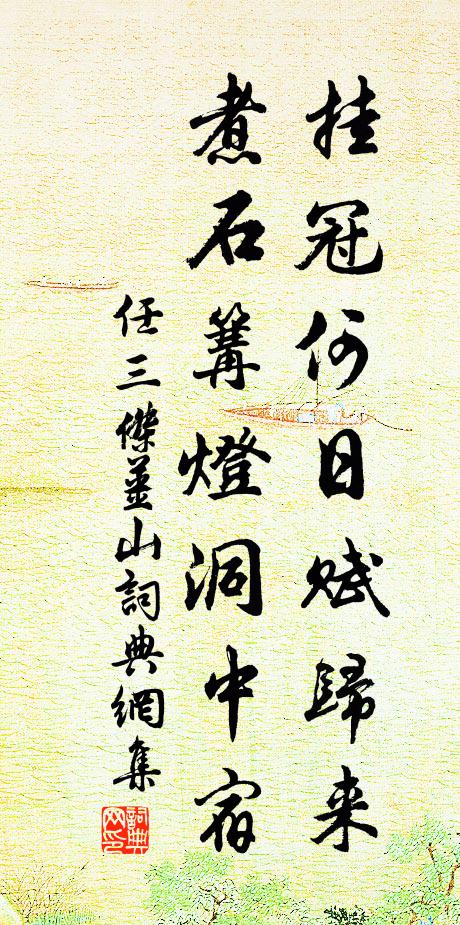 挂冠何日赋歸来
煮石篝燈洞中宿
任三傑
山詞典網集
詞典網印